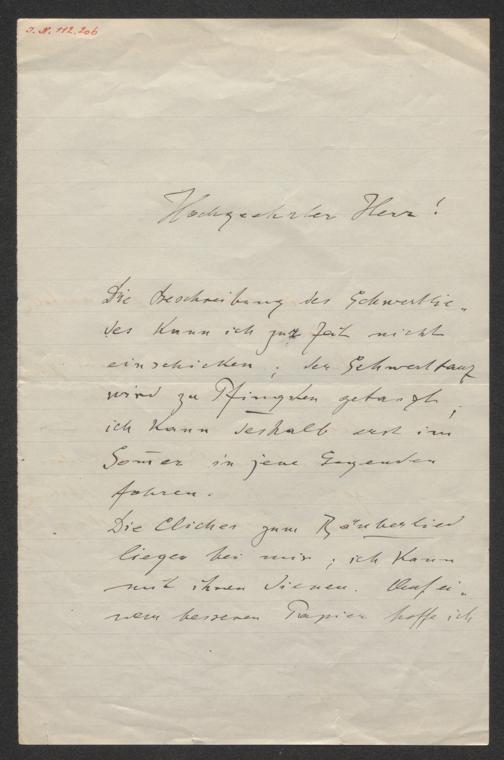 J. N. 112.206
Hochgeehrter Herr!
Die Beschreibung des Schwertlie-
des kann ich zur Zeit nicht
einschicken; der Schwerttanz
wird zu Pfingsten getanzt,
ich kann deshalb erst im
Som̅er in jene Gegenden
fahren.
Die Cliches zum Räuberlied
liegen bei mir; ich kann
mit ihnen dienen. Auf ei-
nem besseren Papier hoffe ich